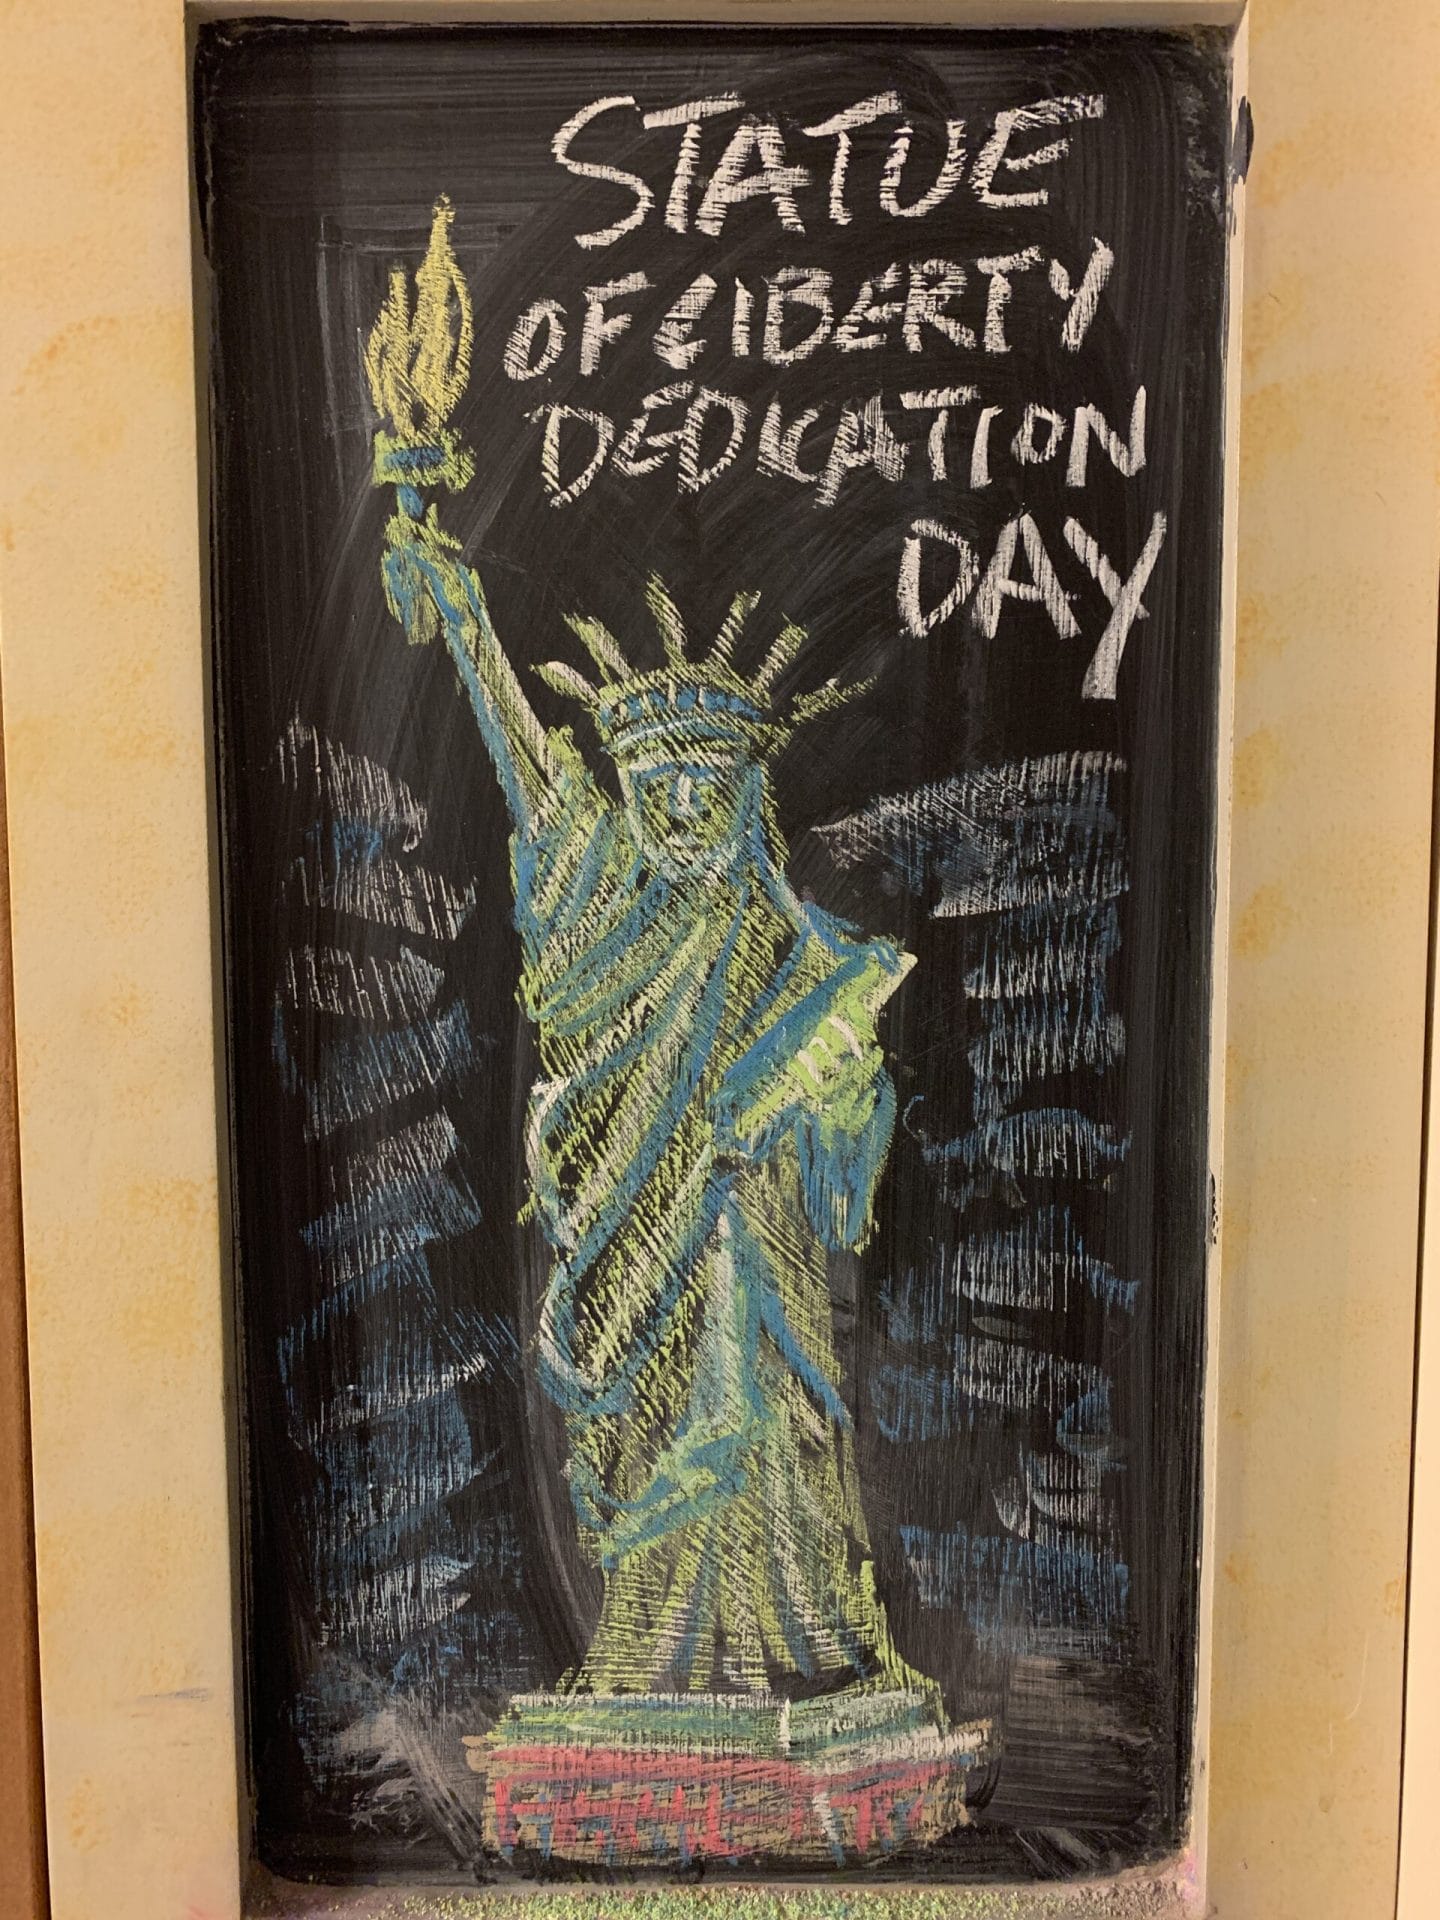 STATUE
OF LIBERTY
DEDICATION
DAY